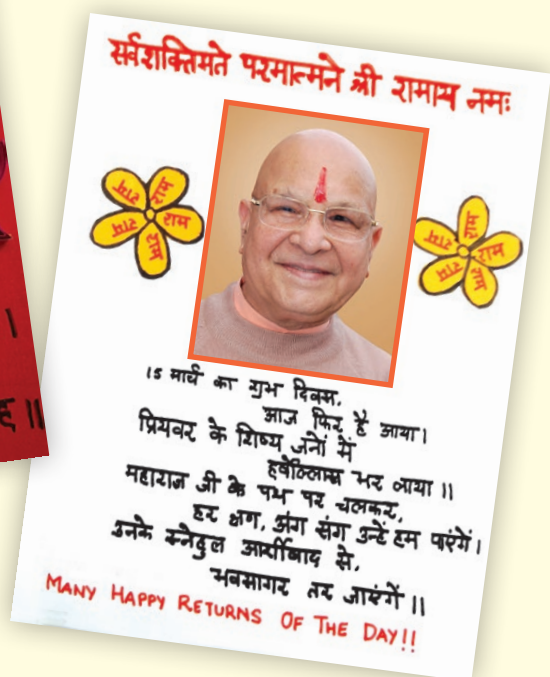 सर्वशक्तिमते परमात्मने श्री रामाय नमः
राम राम राम राम राम
राम राम राम राम राम
15 मार्च का शुभ दिवस,
आज फिर है आया।
प्रियवर के शिष्य जनों में
हर्षोल्लास भर लाया॥
महाराज जी के पथ पर चलकर,
हर क्षण, अंग संग उन्हें हम पाएंगें।
उनके स्नेहुल आर्शीवाद से,
भवसागर तर जाएंगें॥
MANY HAPPY RETURNS OF THE DAY!!
।
॥